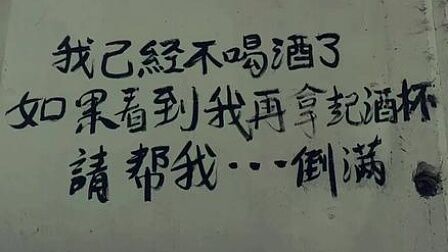 我已經不喝酒了
如果看到我再拿起酒杯
請帮我···倒滿